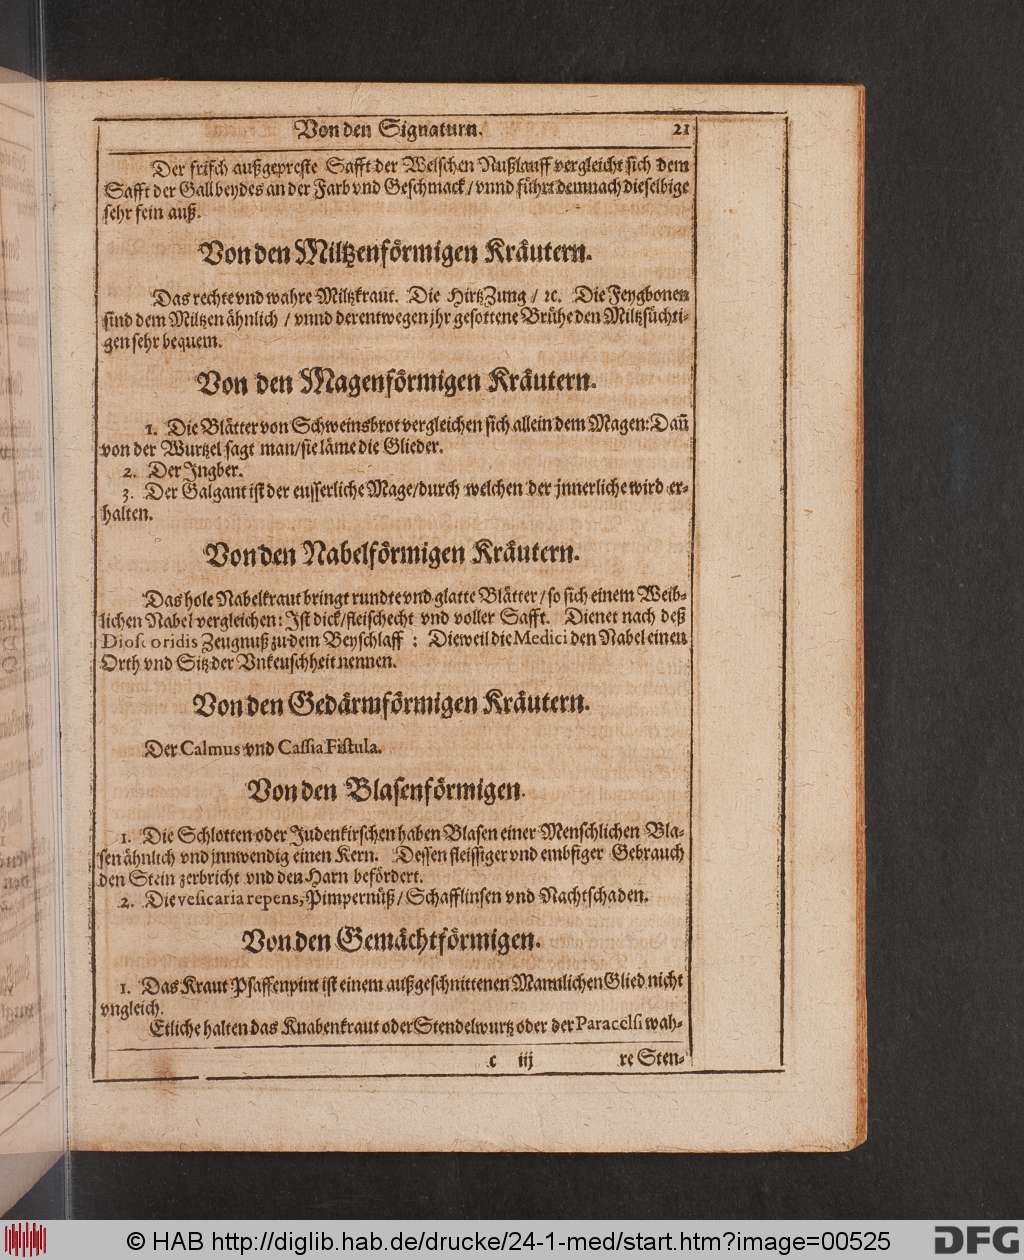 Von den Signaturn. 21
Der frisch außgepreste Safft der Welschen Nußlauff vergleicht sich dem
Safft der Gall beydes an der Farb vnd Geschmack / vnnd führt demnach dieselbige
sehr fein auß.
Von den Miltzenförmigen Kräutern.
Das rechte vnd wahre Miltzkraut. Die HirtzZung / ꝛc. Die Feygbonen
sind dem Miltzen ähnlich / vnnd derentwegen jhr gesottene Brühe den Miltzsüchti-
gen sehr bequem.
Von den Magenförmigen Kräutern.
1. Die Blätter von Schweinsbrot vergleichen sich allein dem Magen: Dañ
von der Wurtzel sagt man / sie läme die Glieder.
2. Der Jngber.
3. Der Galgant ist der eusserliche Mage / durch welchen der jnnerliche wird er-
halten.
Von den Nabelförmigen Kräutern.
Das hole Nabelkraut bringt rundte vnd glatte Blätter / so sich einem Weib-
lichen Nabel vergleichen: Jst dick / fleischecht vnd voller Safft. Dienet nach deß
Dioscoridis Zeugnuß zu dem Beyschlaff : Dieweil die Medici den Nabel einen
Orth vnd Sitz der Vnkeuschheit nennen.
Von den Gedärmförmigen Kräutern.
Der Calmus vnd Cassia Fistula.
Von den Blasenförmigen.
1. Die Schlotten oder Judenkirschen haben Blasen einer Menschlichen Bla-
sen ähnlich vnd jnnwendig einen Kern. Dessen fleissiger vnd embsiger Gebrauch
den Stein zerbricht vnd den Harn befördert.
2. Die vesicaria repens, Pimpernüß / Schafflinsen vnd Nachtschaden.
Von den Gemächtförmigen.
1. Das Kraut Pfaffenpint ist einem außgeschnittenen Mannlichen Glied nicht
vngleich.
Etliche halten das Knabenkraut oder Stendelwurtz oder der Paracelsi wah-
c iij re Sten-
© HAB http://diglib.hab.de/drucke/24-1-med/start.htm?image=00525
DFG